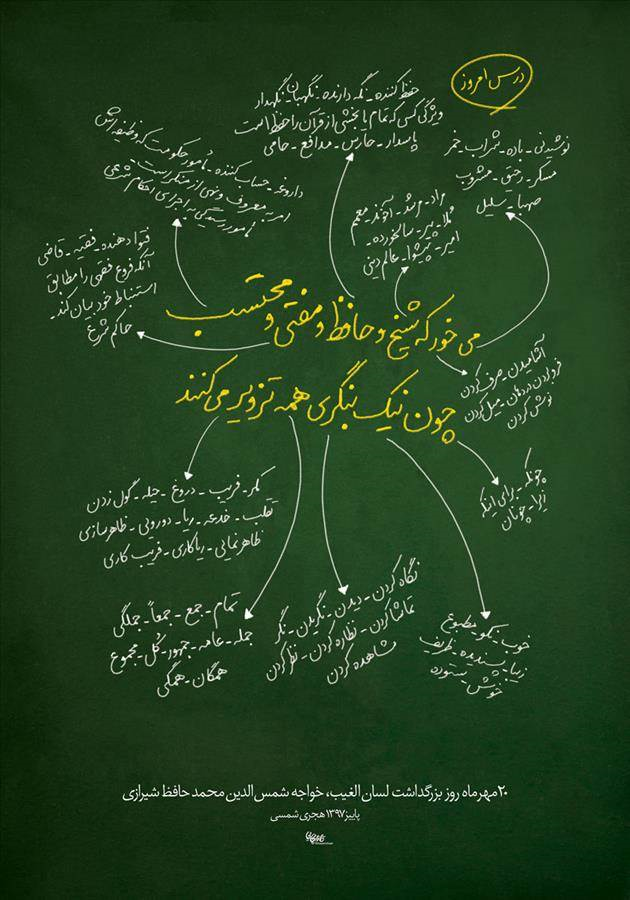 درس امروز
نوشیدنی - باده - شراب - خمر
مسکر - رحیق - مشروب
صهبا - سلیل
حفظ کننده - نگه دارنده - نگهبان - نگهدار
ویژگی کسی که تمام یا بخشی از قرآن را حفظ است
پاسدار - حارس - مدافع - حامی
مراد - مرشد - آخوند - معمم
ملا - پیر - سالخورده -
امیر - پیشوا - عالم دینی
داروغه - حساب کننده - مأمور حکومت که وظیفه اش
امر به معروف و نهی از منکر است -
مأمور رسیدگی به اجرای احکام شرعی
فتوا دهنده - فقیه - قاضی
آنکه فروع فقهی را مطابق
استنباط خود بیان کند -
حاکم شرع
می خور که شیخ و حافظ و مفتی و محتسب
چون نیک بنگری همه تزویر می کنند
آشامیدن - صرف کردن
فرو بردن در دهان - میل کردن
نوش کردن
چونکه - برای اینکه
زیرا - چونان
خوب - نیکو - مطبوع
زیبا - پسندیده - ظریف
خوش - ستوده
نگاه کردن - دیدن - نگریدن - نگر
تماشا کردن - نظاره کردن - نظر کردن
مشاهده کردن
مکر - فریب - دروغ - حیله - گول زدن
تقلب - خدعه - ریا - دورویی - ظاهرسازی
ظاهرنمایی - ریاکاری - فریب کاری
تمام - جمع - جمعاً - جملگی
جمله - عامه - جمهور - کل - مجموع
همگان - همگی
۲۰ مهرماه روز بزرگداشت لسان الغیب، خواجه شمس الدین محمد حافظ شیرازی
پاییز ۱۳۹۷ هجری شمسی